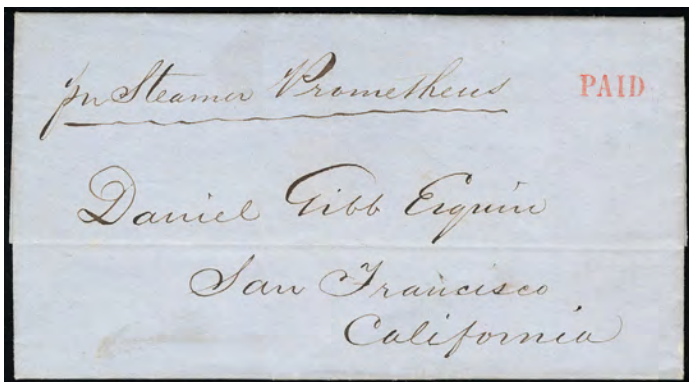 pr Steamer Prometheus
PAID
Daniel Gibb Esquire
San Francisco
California